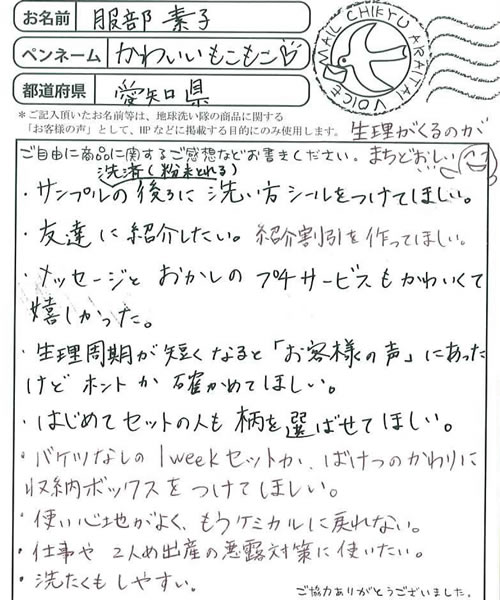 お名前 服部 素子
ペンネーム かわいいもこもこ
都道府県 愛知県
MAIL CHIKYU ARAITAI VOICE
＊ご記入頂いたお名前等は、地球洗い隊の商品に関する
「お客様の声」として、HPなどに掲載する目的にのみ使用します。
生理がくるのが
まちどおしい
ご自由に商品に関するご感想などお書きください。
洗済(粉末とれる)
・サンプルの後ろに洗い方シールをつけてほしい。
・友達に紹介したい。紹介割引を作ってほしい。
・メッセージとおかしのプチサービスもかわいくて
嬉しかった。
・生理周期が短くなると「お客様の声」にあった
けどホントか確かめてほしい。
・はじめてセットの人も柄を選ばせてほしい。
・バケツなしの1weekセットか、ばけつのかわりに
収納ボックスをつけてほしい。
・使い心地がよく、もうケミカルに戻れない。
・仕事や2人め出産の悪露対策に使いたい。
・洗たくもしやすい。
ご協力ありがとうございました。